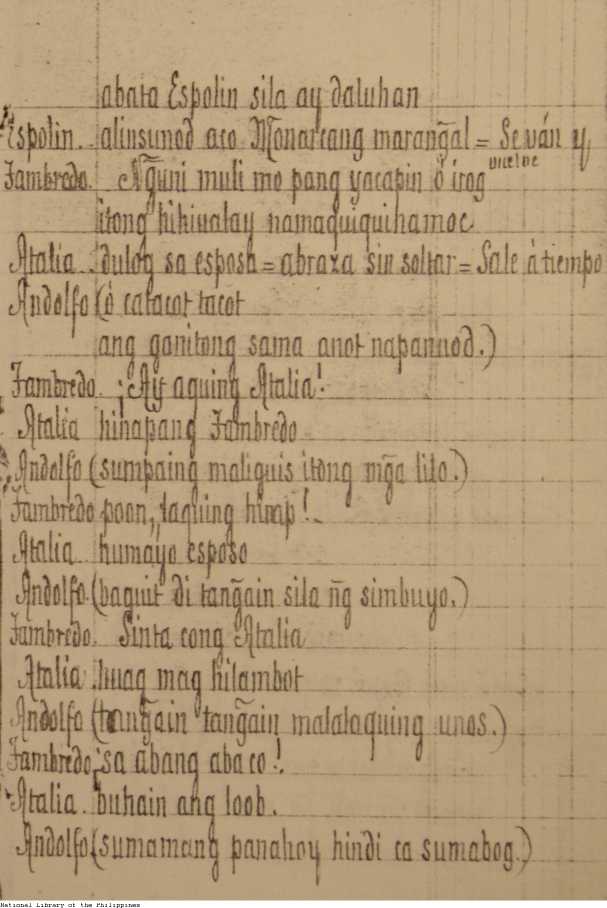 abata Espolin sila ay daluhan
Espolin. alinsunod aco Monarcang marang̃al = Se ván y vuelve
Fambredo. Ng̃uni muli mo pang yacapin ó irog
itong hihiualay namaquiquihamoc
Atalia. dulog sa esposa = abraza sin soltar = Sale á tiempo
Andolfo (ó catacot tacot
ang ganitong sama anot napannod.)
Fambredo. ¡Ay aquing Atalia!
Atalia hinapang Fambredo
Andolfo (sumpaing maliquis itong mg̃a lilo.)
Fambredo poon, taquing hirap!
Atalia humayo esposo
Andolfo. (baquit di tang̃ain sila ng̃ simbuyo.)
Fambredo. Sinta cong Atalia
Atalia. huag mag hilambot
Andolfo (tang̃ain tang̃ain malalaquing unos.)
Fambredo ¡sa abang aba co!
Atalia. buhain ang loob.
Andolfo (sumamang panahoy hindi ca sumabog.)
National Library of the Philippines